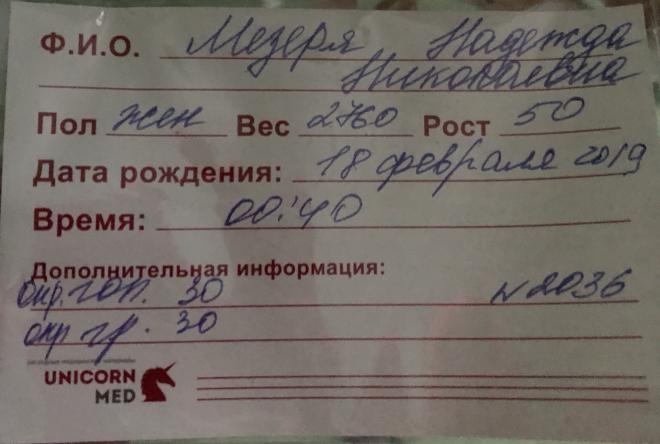 Ф.И.О. Мезеря Надежда
Николаевна
Пол жен Вес 2760 Рост 50
Дата рождения: 18 февраля 2019
Время: 00:40
Дополнительная информация:
окр. гол. 30 N2036
окр гр. 30
UNICORN
MED